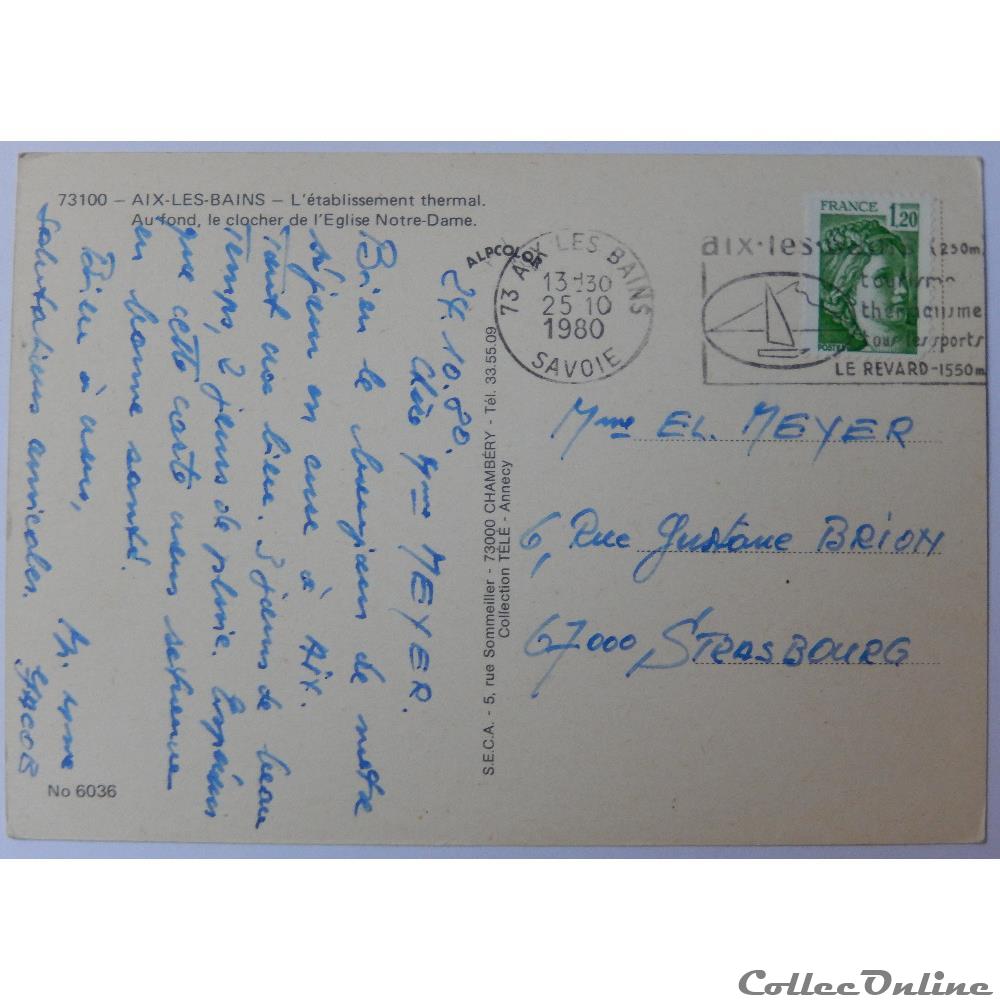 73100 – AIX-LES-BAINS – L'établissement thermal.
Au fond, le clocher de l'Eglise Notre-Dame.
ALPCOLOR
24.10.80.
Chère Mme MEYER.
Bien le bonjour de notre
séjour en cure à Aix.
Tout va bien. 3 jours de beau
temps, 2 jours de pluie. Espérons
que cette carte vous retrouve
en bonne santé.
Bien à vous,
Salutations amicales.
M. Mme
JACOB
No 6036
S.E.C.A. - 5, rue Sommeiller - 73000 CHAMBÉRY - Tél. 33.55.09
Collection TÉLÉ - Annecy
73 AIX LES BAINS
13H30
25-10
1980
SAVOIE
FRANCE
1,20
POSTES
aix-les-bains (250m
tourisme
thermalisme
tous les sports
LE REVARD-1550m
Mme EL. MEYER
6, Rue Gustave BRION
67000 STRASBOURG
CollecOnline